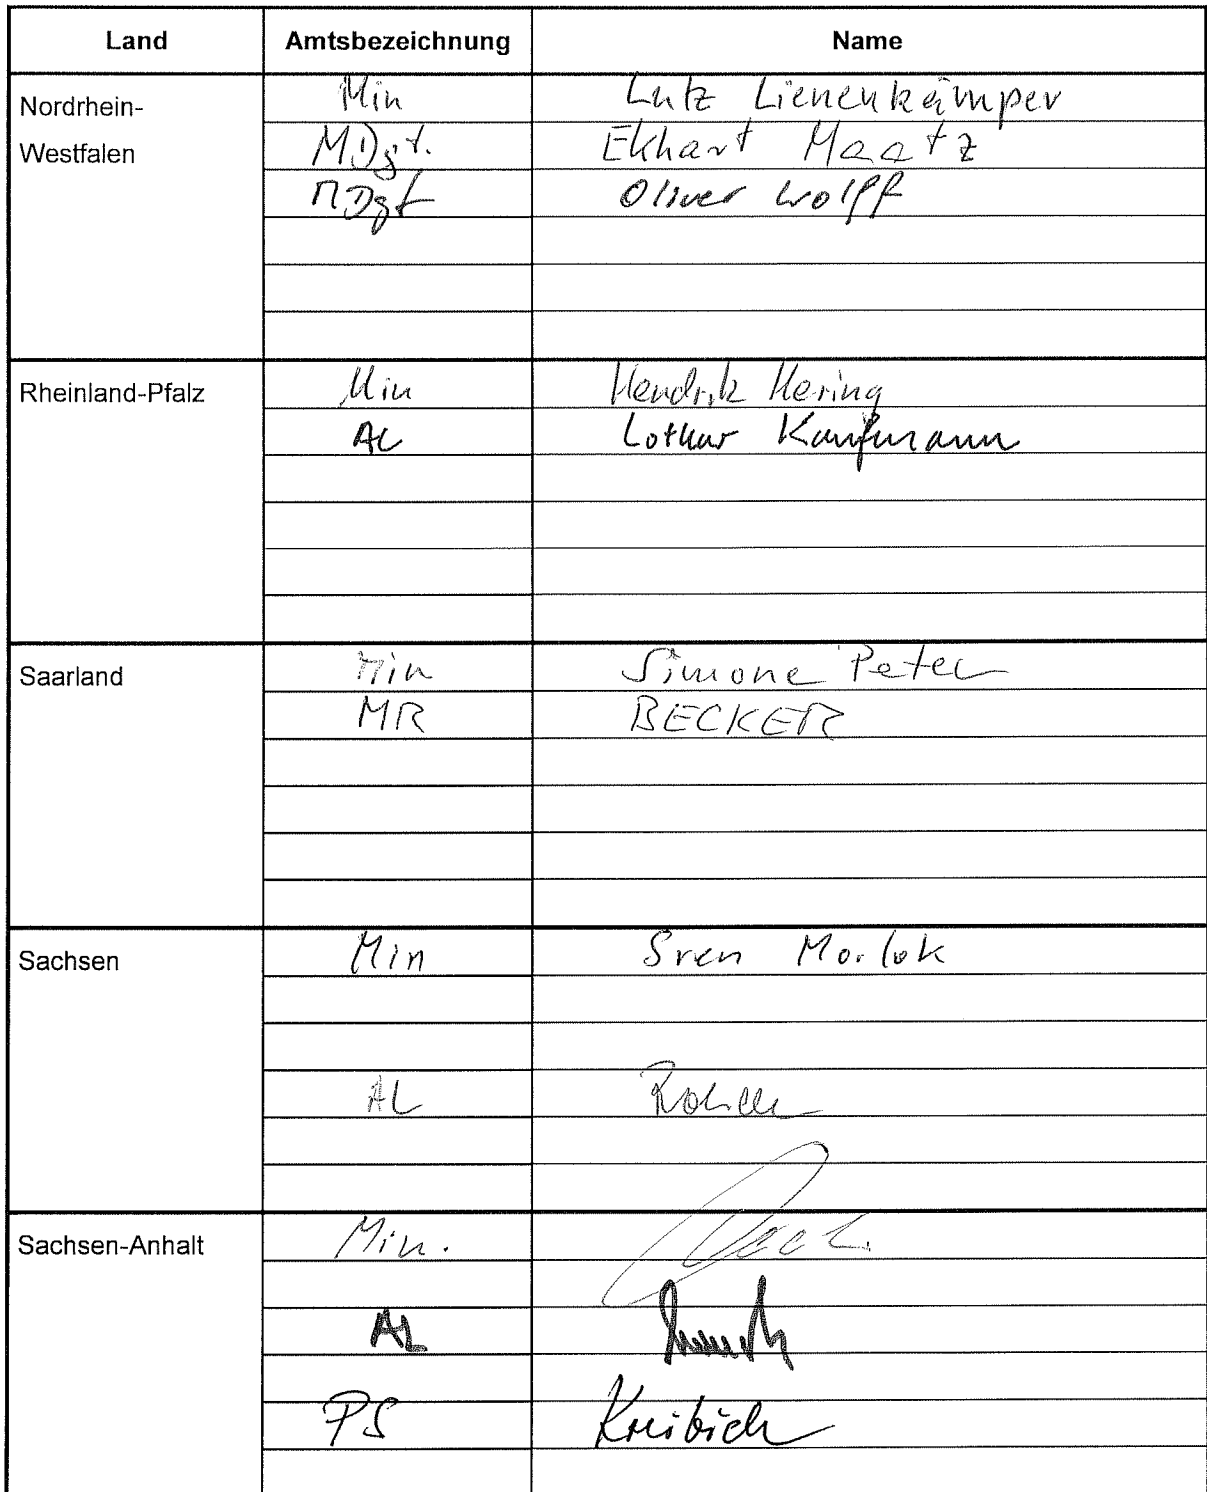 Land Amtsbezeichnung Name
Nordrhein- Min Lutz Lienenkämper
Westfalen MDgt. Ekhart Maatz
MDgt Oliver Wolff
Rheinland-Pfalz Min Hendrik Hering
AL Lothar Kaufmann
Saarland Min Simone Peter
MR BECKER
Sachsen Min Sven Morlok
AL Rohde
Sachsen-Anhalt Min.
AL
PS Kreibich